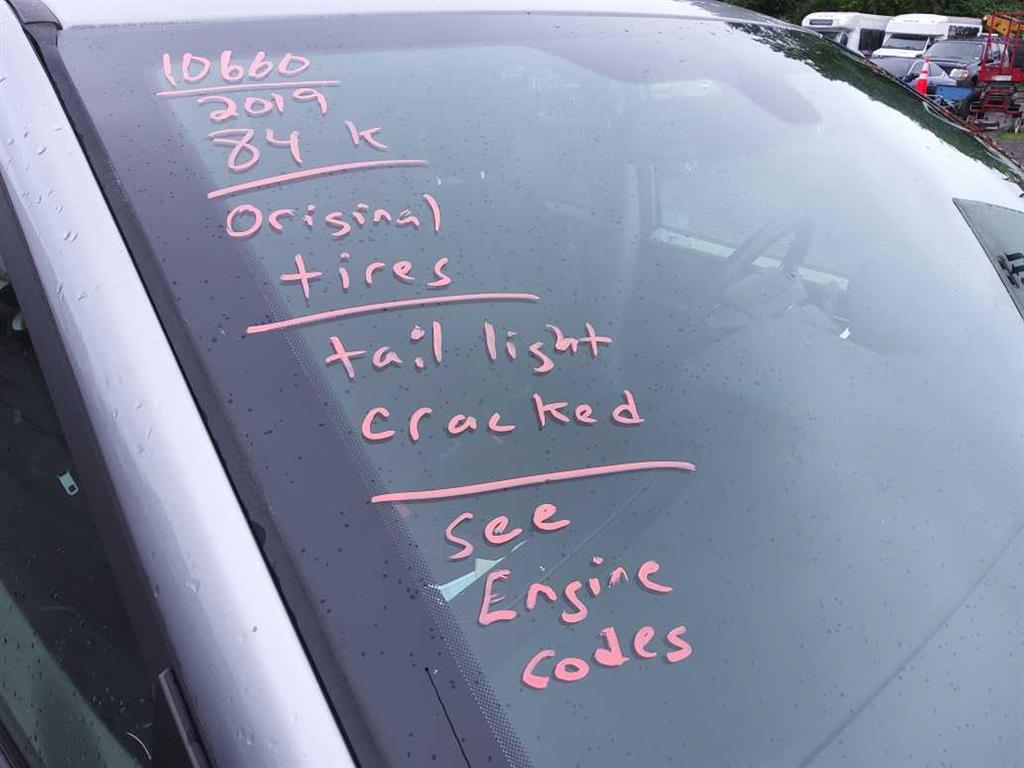 10660
2019
84 K
Original
tires
tail light
cracked
see
Engine
codes